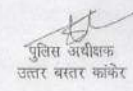 पुलिस अधीक्षक
उत्तर बस्तर कांकेर